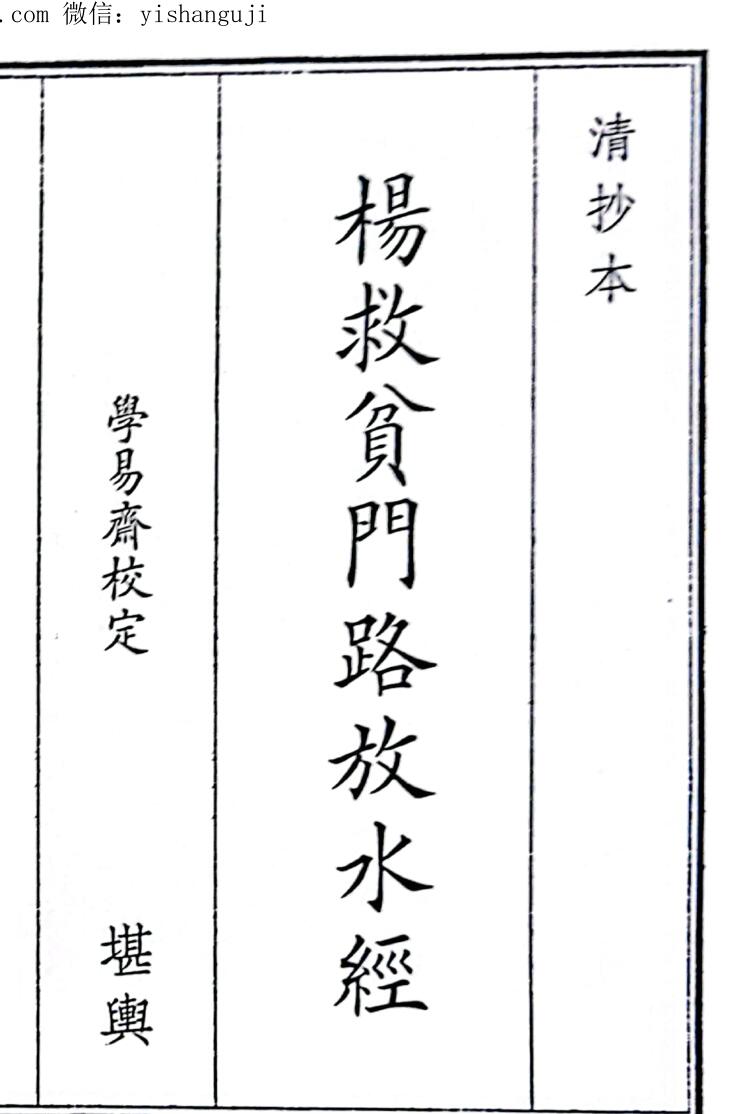 .com 微信：yishanguji
清抄本
楊救貧門路放水經
學易齋校定
堪輿